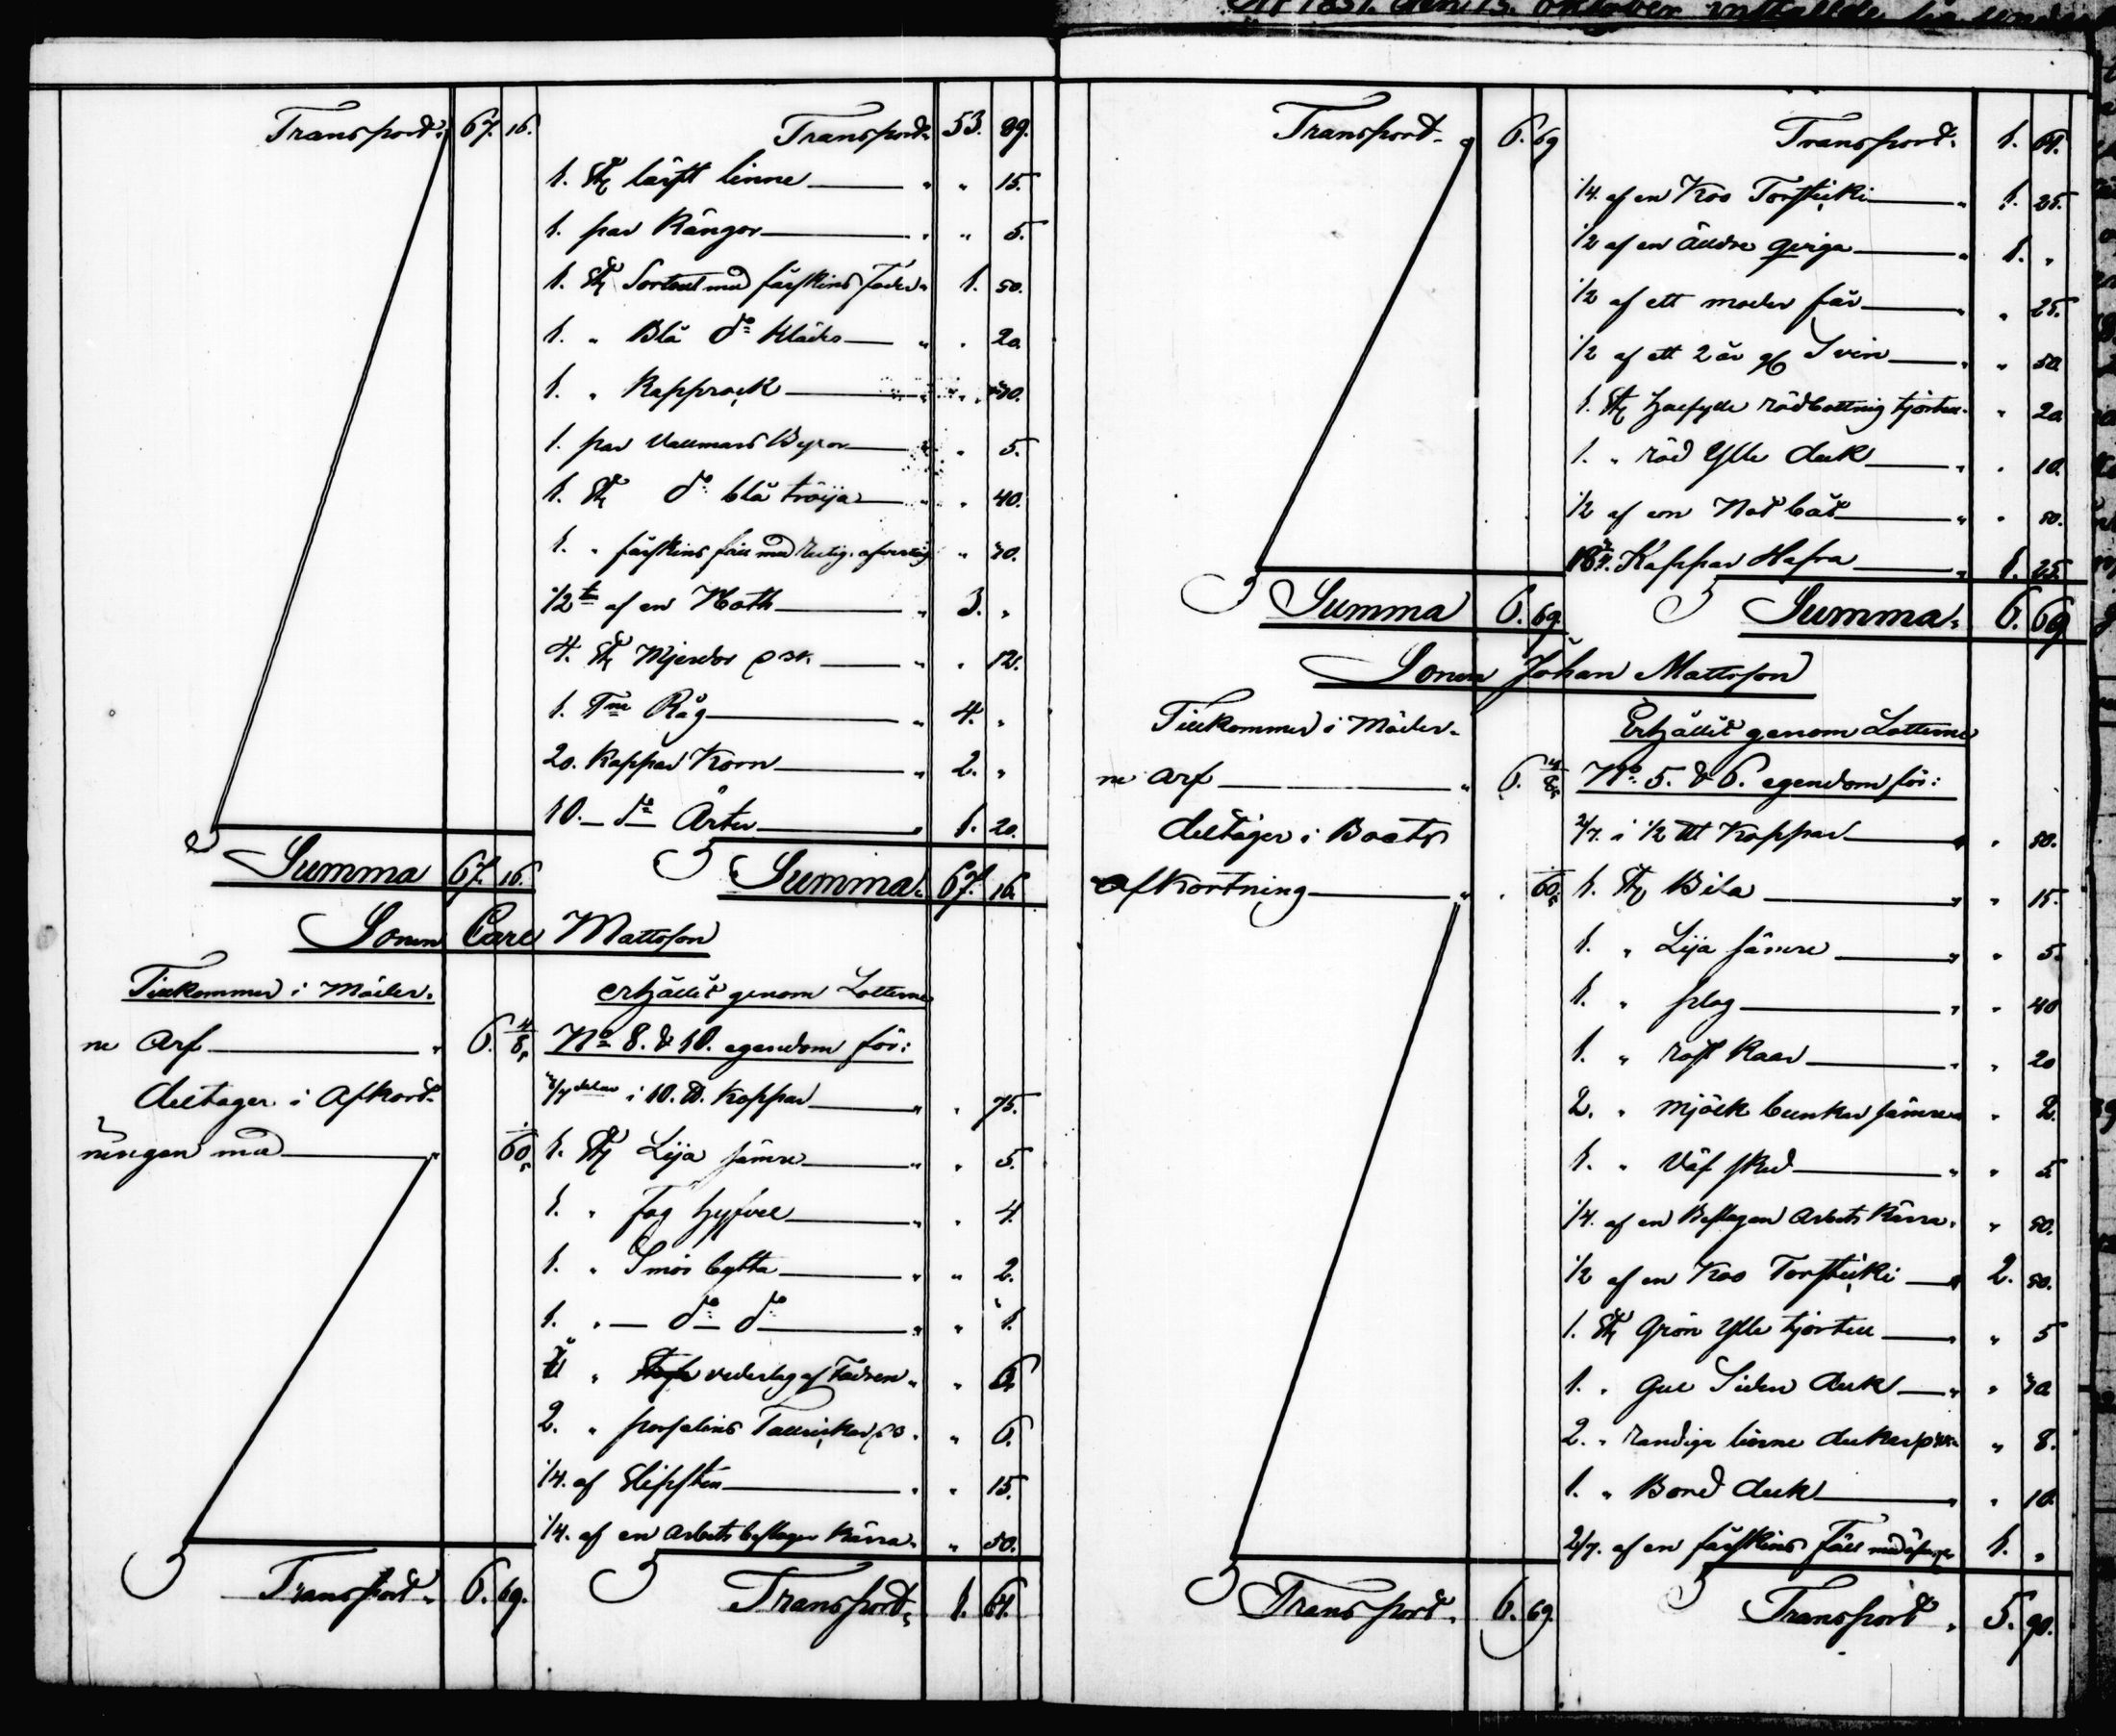 Transport. 67. 16.
Transport. 53. 89.
1. st lärft linne " " 15.
1. par Kängor " " 5.
1. st Sortout med fårskins foder " 1. 50.
1. " Blå do Klädes " " 20.
1. " Kapprock " "
1. par Vallmars Byxor " " 5.
1. st do blå tröija " " 40.
1. " fårskins fäll med
1/2 af en Noth " 3. "
4. st Mjerdor " " 12.
1. Tne Råg " 4. "
20. Kappar Korn " 2. "
10. do Ärter " 1. 20.
Summa 67. 16.
Summa. 67. 16.
Sonen Carl Mattsson
Tillkommer i Möder.
ne Arf " 6. 4/8
deltager i Afkort-
ningen med " 60.
erhållit genom Lotterne
No 8. & 10. egendom för:
i 10. lb. Koppar " " 75.
1. st Lija sämre " " 5.
1. " Fog hyfvel " " 4.
1. " Smör bytta " " 2.
1. " do do " " 1.
" vederlag af Fadren " " 6.
2. " porslins Tallrickar " " 6.
1/4. af Slipsten " " 15.
1/4. af en arbets beslagen Kärra " " 50.
Transport. 6. 69.
Transport. 1. 64.
Transport. 6. 69
Transport. 1. 64.
1/4. af en Koo Torsticki " 1. 25.
1/2 af en äldre qviga " 1. "
1/2 af ett moder får " " 25.
1/2 af ett 2 år gl Svin " " 50.
1. st halfylle rödbottnig kjortel " " 20
1. " röd Ylle duk " " 10.
1/2 af en Not båt " " 50.
Kappar Hafra " 1. 25.
Summa 6. 69.
Summa. 6. 69
Sonen Johan Mattsson
Tillkommer i Möder-
ne arf " 6. 4/8
deltager i Boets
afkortning " " 60
Erhållit genom Lotterne
No. 5. & 6. egendom för:
2/7. i 1/2 lb Koppar " " 50.
1. st Bila " " 15.
1. " Lija sämre " " 5.
1. " plog " " 40
1. " rost kaar " " 20
2. " mjölk bunkar sämre " " 2.
1. " Väf sked " " 5
1/4. af en Beslagen Arbets Kärra. " 50.
1/2 af en Koo Torsticki " 2. 50.
1. st Grön Ylle kjortel " " 5
1. " Gul Siden duk " "
2. " randiga linne dukar " 8.
1. " Bord duk " " 10
2/7. af en fårskins Fäll med 1. "
Transport. 6. 69.
Transport. 5. 90.